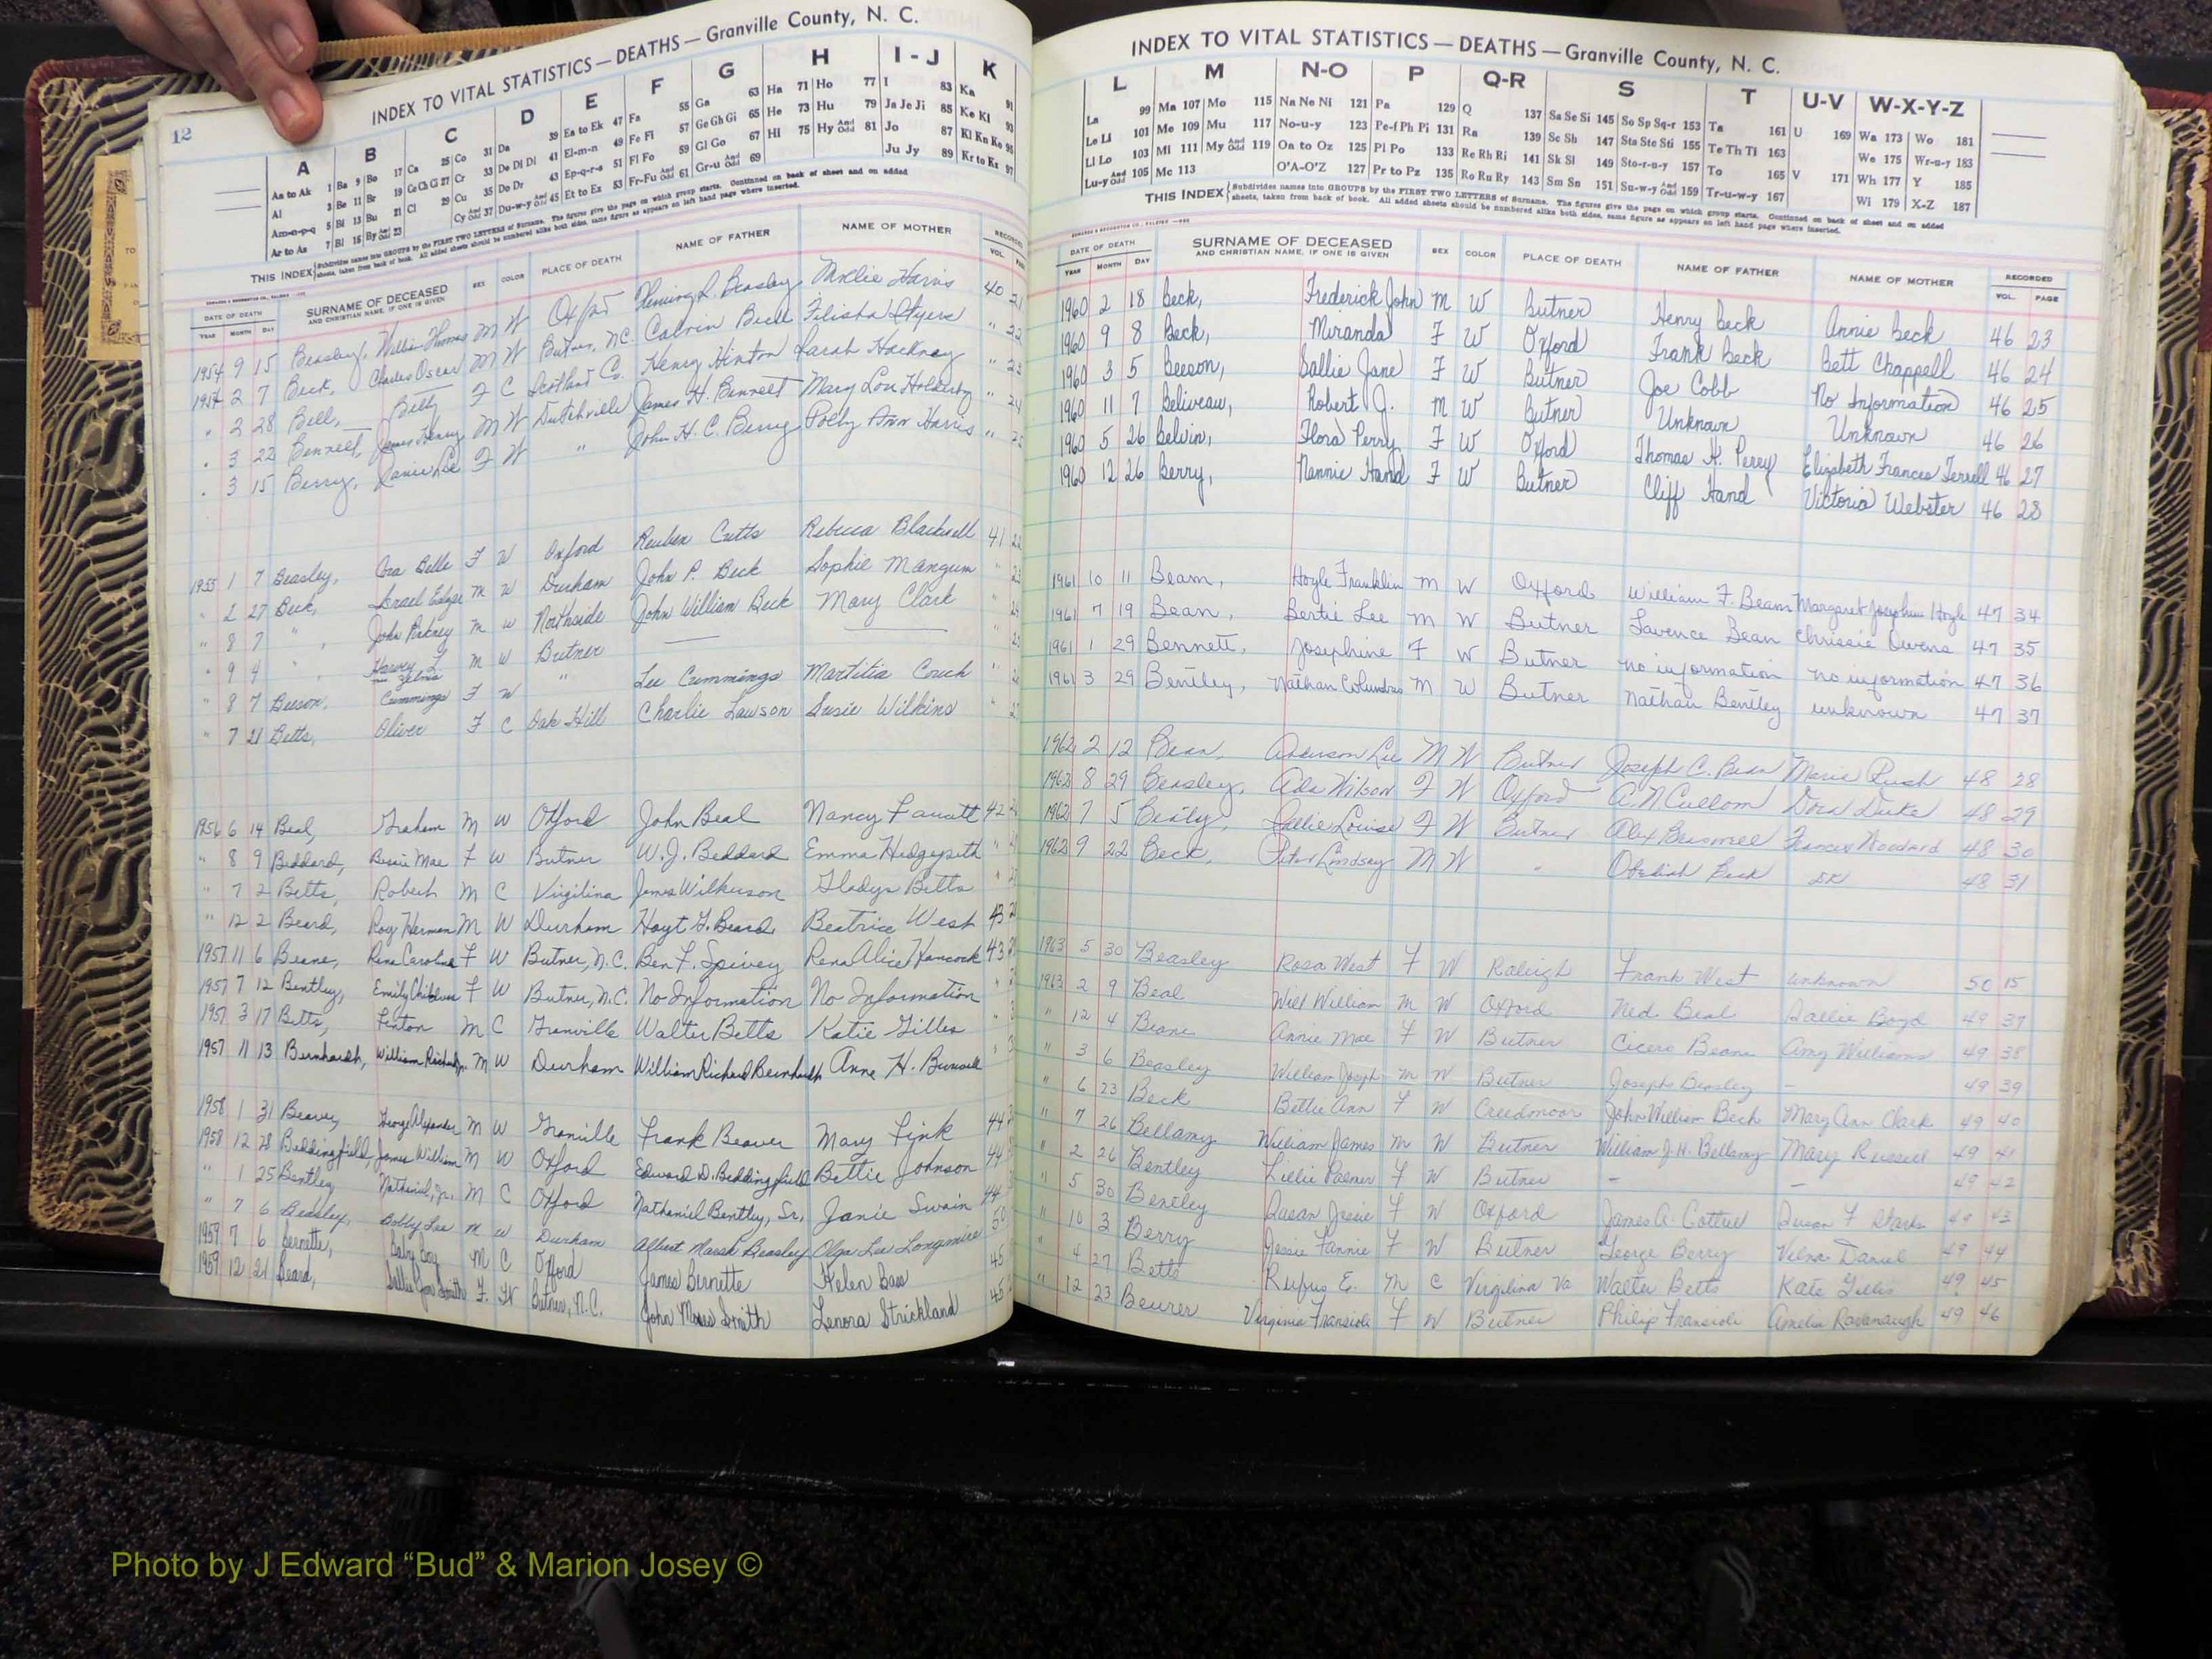 12
INDEX TO VITAL STATISTICS — DEATHS — Granville County, N. C.
A B C D E F G H I - J K
Aa to Ak 1 Ba 9 Bo 17 Ca 25 Co 31 Da 39 Ea to Ek 47 Fa 55 Ga 63 Ha 71 Ho 77 I 83 Ka 91
Al 3 Be 11 Br 19 Ce Ch Ci 27 Cr 33 De Di Dl 41 El-m-n 49 Fe Fi 57 Ge Gh Gi 65 He 73 Hu 79 Ja Je Ji 85 Ke Ki 93
Am-n-p-q 5 Bl 13 Bu 21 Cl 29 Cu 35 Do Dr 43 Ep-q-r-s 51 Fl Fo 59 Gl Go 67 Hi 75 Hy And Odd 81 Jo 87 Kl Kn Ko 95
Ar to As 7 Bl 15 By And Odd 23 Cy And Odd 37 Du-w-y And Odd 45 Et to Ez 53 Fr-Fu And Odd 61 Gr-u And Odd 69 Ju Jy 89 Kr to Kz 97
THIS INDEX Subdivides names into GROUPS by the FIRST TWO LETTERS of Surname. The figures give the page on which group starts. Continued on back of sheet and on added
sheets, taken from back of book. All added sheets should be numbered alike both sides, same figure as appears on left hand page where inserted.
DATE OF DEATH SURNAME OF DECEASED SEX COLOR PLACE OF DEATH NAME OF FATHER NAME OF MOTHER RECORDED
YEAR MONTH DAY AND CHRISTIAN NAME, IF ONE IS GIVEN VOL.
1954 9 15 Beasley, William Thomas M W Oxford Fleming R. Beasley Mollie Harris 40 21
1954 2 7 Beck, Charles Oscar M W Butner, N.C. Calvin Beck Filisha Styers " 22
" 2 28 Bell, Betty F C Scotland Co. Henry Hinton Sarah Hackney " 23
" 3 22 Bennett, James Henry M W Dutchville James H. Bennett Mary Lou " 24
" 3 15 Berry, Janie Lee F W " John H. C. Berry Polly Ann Harris "
1955 1 7 Beasley, Ora Belle F W Oxford Reuben Cutts Rebecca Blackwell 41
" 2 27 Beck, Israel Edgar M W Durham John P. Beck Sophie Mangum "
" 8 7 " , John Pinkney M W Northside John William Beck Mary Clark "
" 9 4 " , Harvey L. M W Butner
" 8 7 Beeson, Zelma Cummings F W " Lee Cummings Martitia Couch "
" 7 21 Betts, Oliver F C Oak Hill Charlie Lawson Susie Wilkins "
1956 6 14 Beal, Graham M W Oxford John Beal Nancy 42
" 8 9 Beddard, Mae F W Butner W. J. Beddard Emma Hedgepeth "
" 7 2 Betts, Robert M C Virgilina James Wilkerson Gladys Betts "
" 12 2 Beard, Roy Herman M W Durham Hoyt G. Beard Beatrice West 43
1957 11 6 Beane, Rena Caroline F W Butner, N.C. Ben F. Spivey Rena Alice Hancock 43
1957 7 12 Bentley, Emily F W Butner, N.C. No Information No Information "
1957 3 17 Betts, Fenton M C Granville Walter Betts Katie Gilles "
1957 11 13 Bernhardt, William Richard Jr. M W Durham William Richard Bernhardt Anne H.
1958 1 31 Beaver, George Alexander M W Granville Frank Beaver Mary Fink 44
1958 12 28 Beddingfield, James William M W Oxford Edward D. Beddingfield Bettie Johnson 44
" 1 25 Bentley Nathaniel, Jr. M C Oxford Nathaniel Bentley, Sr. Janie Swain 44
" 7 6 Beasley, Bobby Lee M W Durham Albert Marsh Beasley Olga Lee Longmire 50
1959 7 6 Bernette, Baby Boy M C Oxford James Bernette Helen Bass 45
1959 12 21 Beard, Sallie Smith F. W Butner, N.C. John Smith Lenora Strickland 45
INDEX TO VITAL STATISTICS — DEATHS — Granville County, N. C.
L M N-O P Q-R S T U-V W-X-Y-Z
La 99 Ma 107 Mo 115 Na Ne Ni 121 Pa 129 Q 137 Sa Se Si 145 So Sp Sq-r 153 Ta 161 U 169 Wa 173 Wo 181
Le Li 101 Me 109 Mu 117 No-u-y 123 Pe-f Ph Pi 131 Ra 139 Sc Sh 147 Sta Ste Sti 155 Te Th Ti 163 We 175 Wr-u-y 183
Ll Lo 103 Mi 111 My And Odd 119 Oa to Oz 125 Pl Po 133 Re Rh Ri 141 Sk Sl 149 Sto-r-u-y 157 To 165 V 171 Wh 177 Y 185
Lu-y And Odd 105 Mc 113 O'A-O'Z 127 Pr to Pz 135 Ro Ru Ry 143 Sm Sn 151 Su-w-y And Odd 159 Tr-u-w-y 167 Wi 179 X-Z 187
THIS INDEX Subdivides names into GROUPS by the FIRST TWO LETTERS of Surname. The figures give the page on which group starts. Continued on back of sheet and on added
sheets, taken from back of book. All added sheets should be numbered alike both sides, same figure as appears on left hand page where inserted.
DATE OF DEATH SURNAME OF DECEASED SEX COLOR PLACE OF DEATH NAME OF FATHER NAME OF MOTHER RECORDED
YEAR MONTH DAY AND CHRISTIAN NAME, IF ONE IS GIVEN VOL. PAGE
1960 2 18 Beck, Frederick John M W Butner Henry Beck Annie Beck 46 23
1960 9 8 Beck, Miranda F W Oxford Frank Beck Bett Chappell 46 24
1960 3 5 Beeson, Sallie Jane F W Butner Joe Cobb No Information 46 25
1960 11 7 Beliveau, Robert J. M W Butner Unknown Unknown 46 26
1960 5 26 Belvin, Flora Perry F W Oxford Thomas H. Perry Elizabeth Frances Terrell 46 27
1960 12 26 Berry, Nannie Hand F W Butner Cliff Hand Victoria Webster 46 28
1961 10 11 Beam, Hoyle Franklin M W Oxford William F. Beam Margaret Josephine Hoyle 47 34
1961 7 19 Bean, Bertie Lee M W Butner Lavence Bean Chrissie Owens 47 35
1961 1 29 Bennett, Josephine F W Butner no information no information 47 36
1961 3 29 Bentley, Nathan Columbus M W Butner Nathan Bentley unknown 47 37
1962 2 12 Bean, Anderson Lee M W Butner Joseph C. Bean Marie Rush 48 28
1962 8 29 Beasley, Ada Wilson F W Oxford A. N Cullom Dora Duke 48 29
1962 7 5 Beaty, Sallie Louise F W Butner Alex Frances Woodard 48 30
1962 9 22 Beck, Peter Lindsay M W " Obediah Beck DK 48 31
1963 5 30 Beasley Rosa West F W Raleigh Frank West unknown 50 15
1963 2 9 Beal Will William M W Oxford Ned Beal Sallie Boyd 49 37
" 12 4 Beane Annie Mae F W Butner Cicero Beane Amy Williams 49 38
" 3 6 Beasley William Joseph M W Butner Joseph Beasley — 49 39
" 6 23 Beck Bettie Ann F W Creedmoor John William Beck Mary Ann Clark 49 40
" 7 26 Bellamy William James M W Butner William J. H. Bellamy Mary Russell 49 41
" 2 26 Bentley Lillie Palmer F W Butner — — 49 42
" 5 30 Bentley Susan Jessie F W Oxford James A. Cottrell Susan F Starks 49 43
" 10 3 Berry Jessie Fannie F W Butner George Berry Velna Daniel 49 44
" 4 27 Betts Rufus E. M C Virgilina Va Walter Betts Kate Gillis 49 45
" 12 23 Beurer Virginia Fransioli F W Butner Philip Fransioli Amelia Kavanaugh 49 46
Photo by J Edward “Bud” & Marion Josey ©